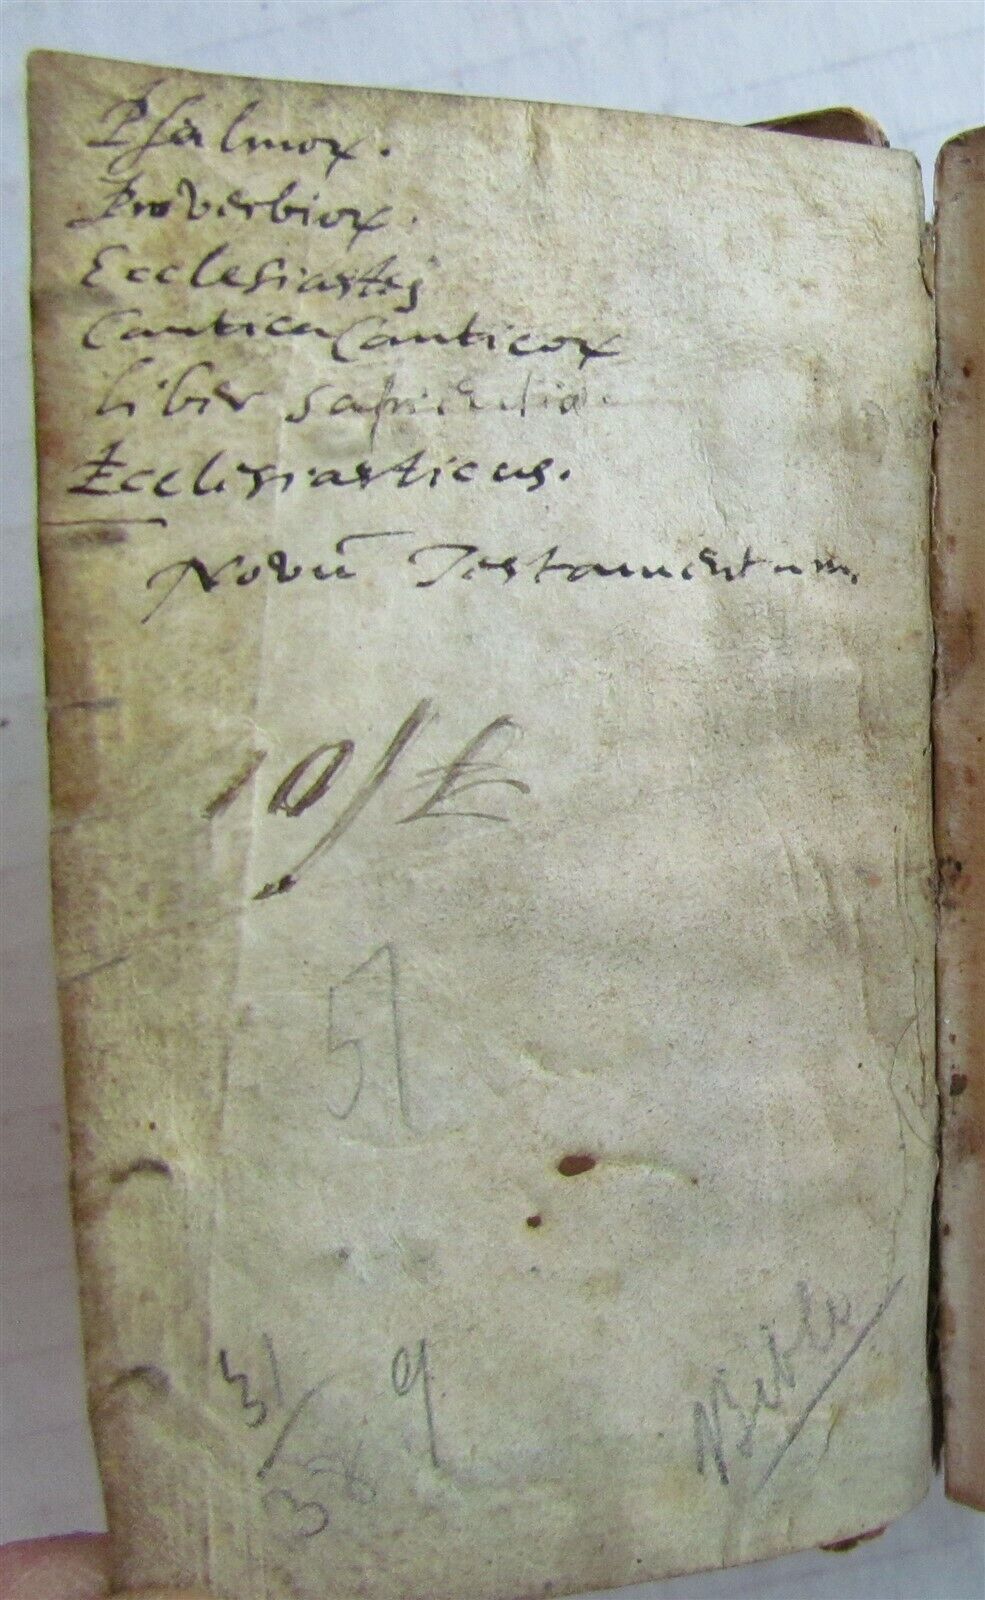 Psalmoꝝ.
Proverbioꝝ.
Ecclesiastes
Cantica Canticoꝝ
Liber Sapientia
Ecclesiasticus.
Novū Testamentum.
10/
51
31/38
9
Bible